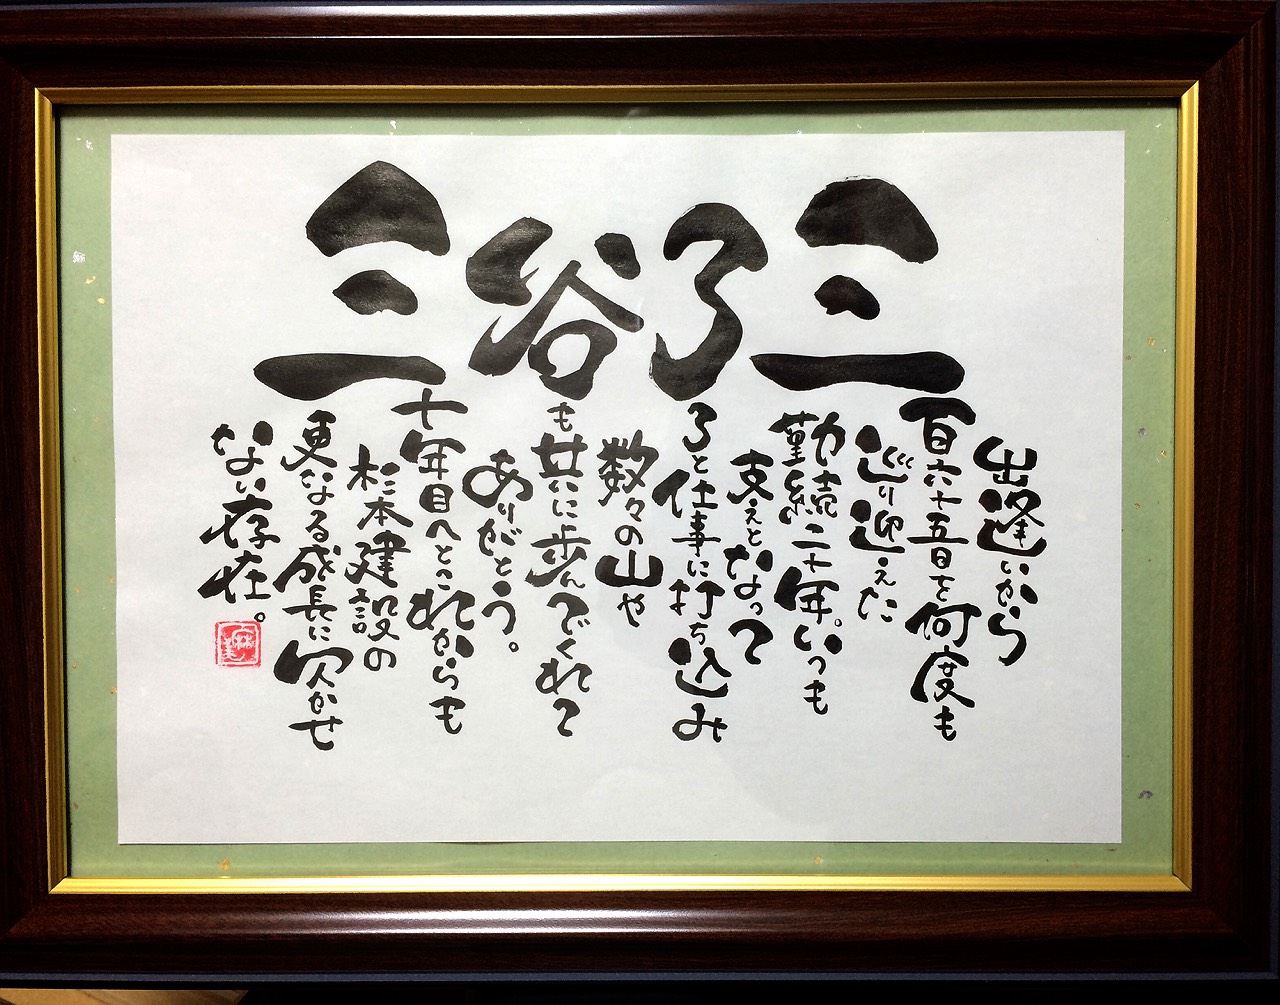 三谷了三
出逢いから
百六十五日を何度も
巡り迎えた
勤続二十年。いつも
支えとなって
了と仕事に打ち込み
数々の山や
も共に歩んでくれて
ありがとう。
十年目へとこれからも
杉本建設の
更なる成長に欠かせ
ない存在。